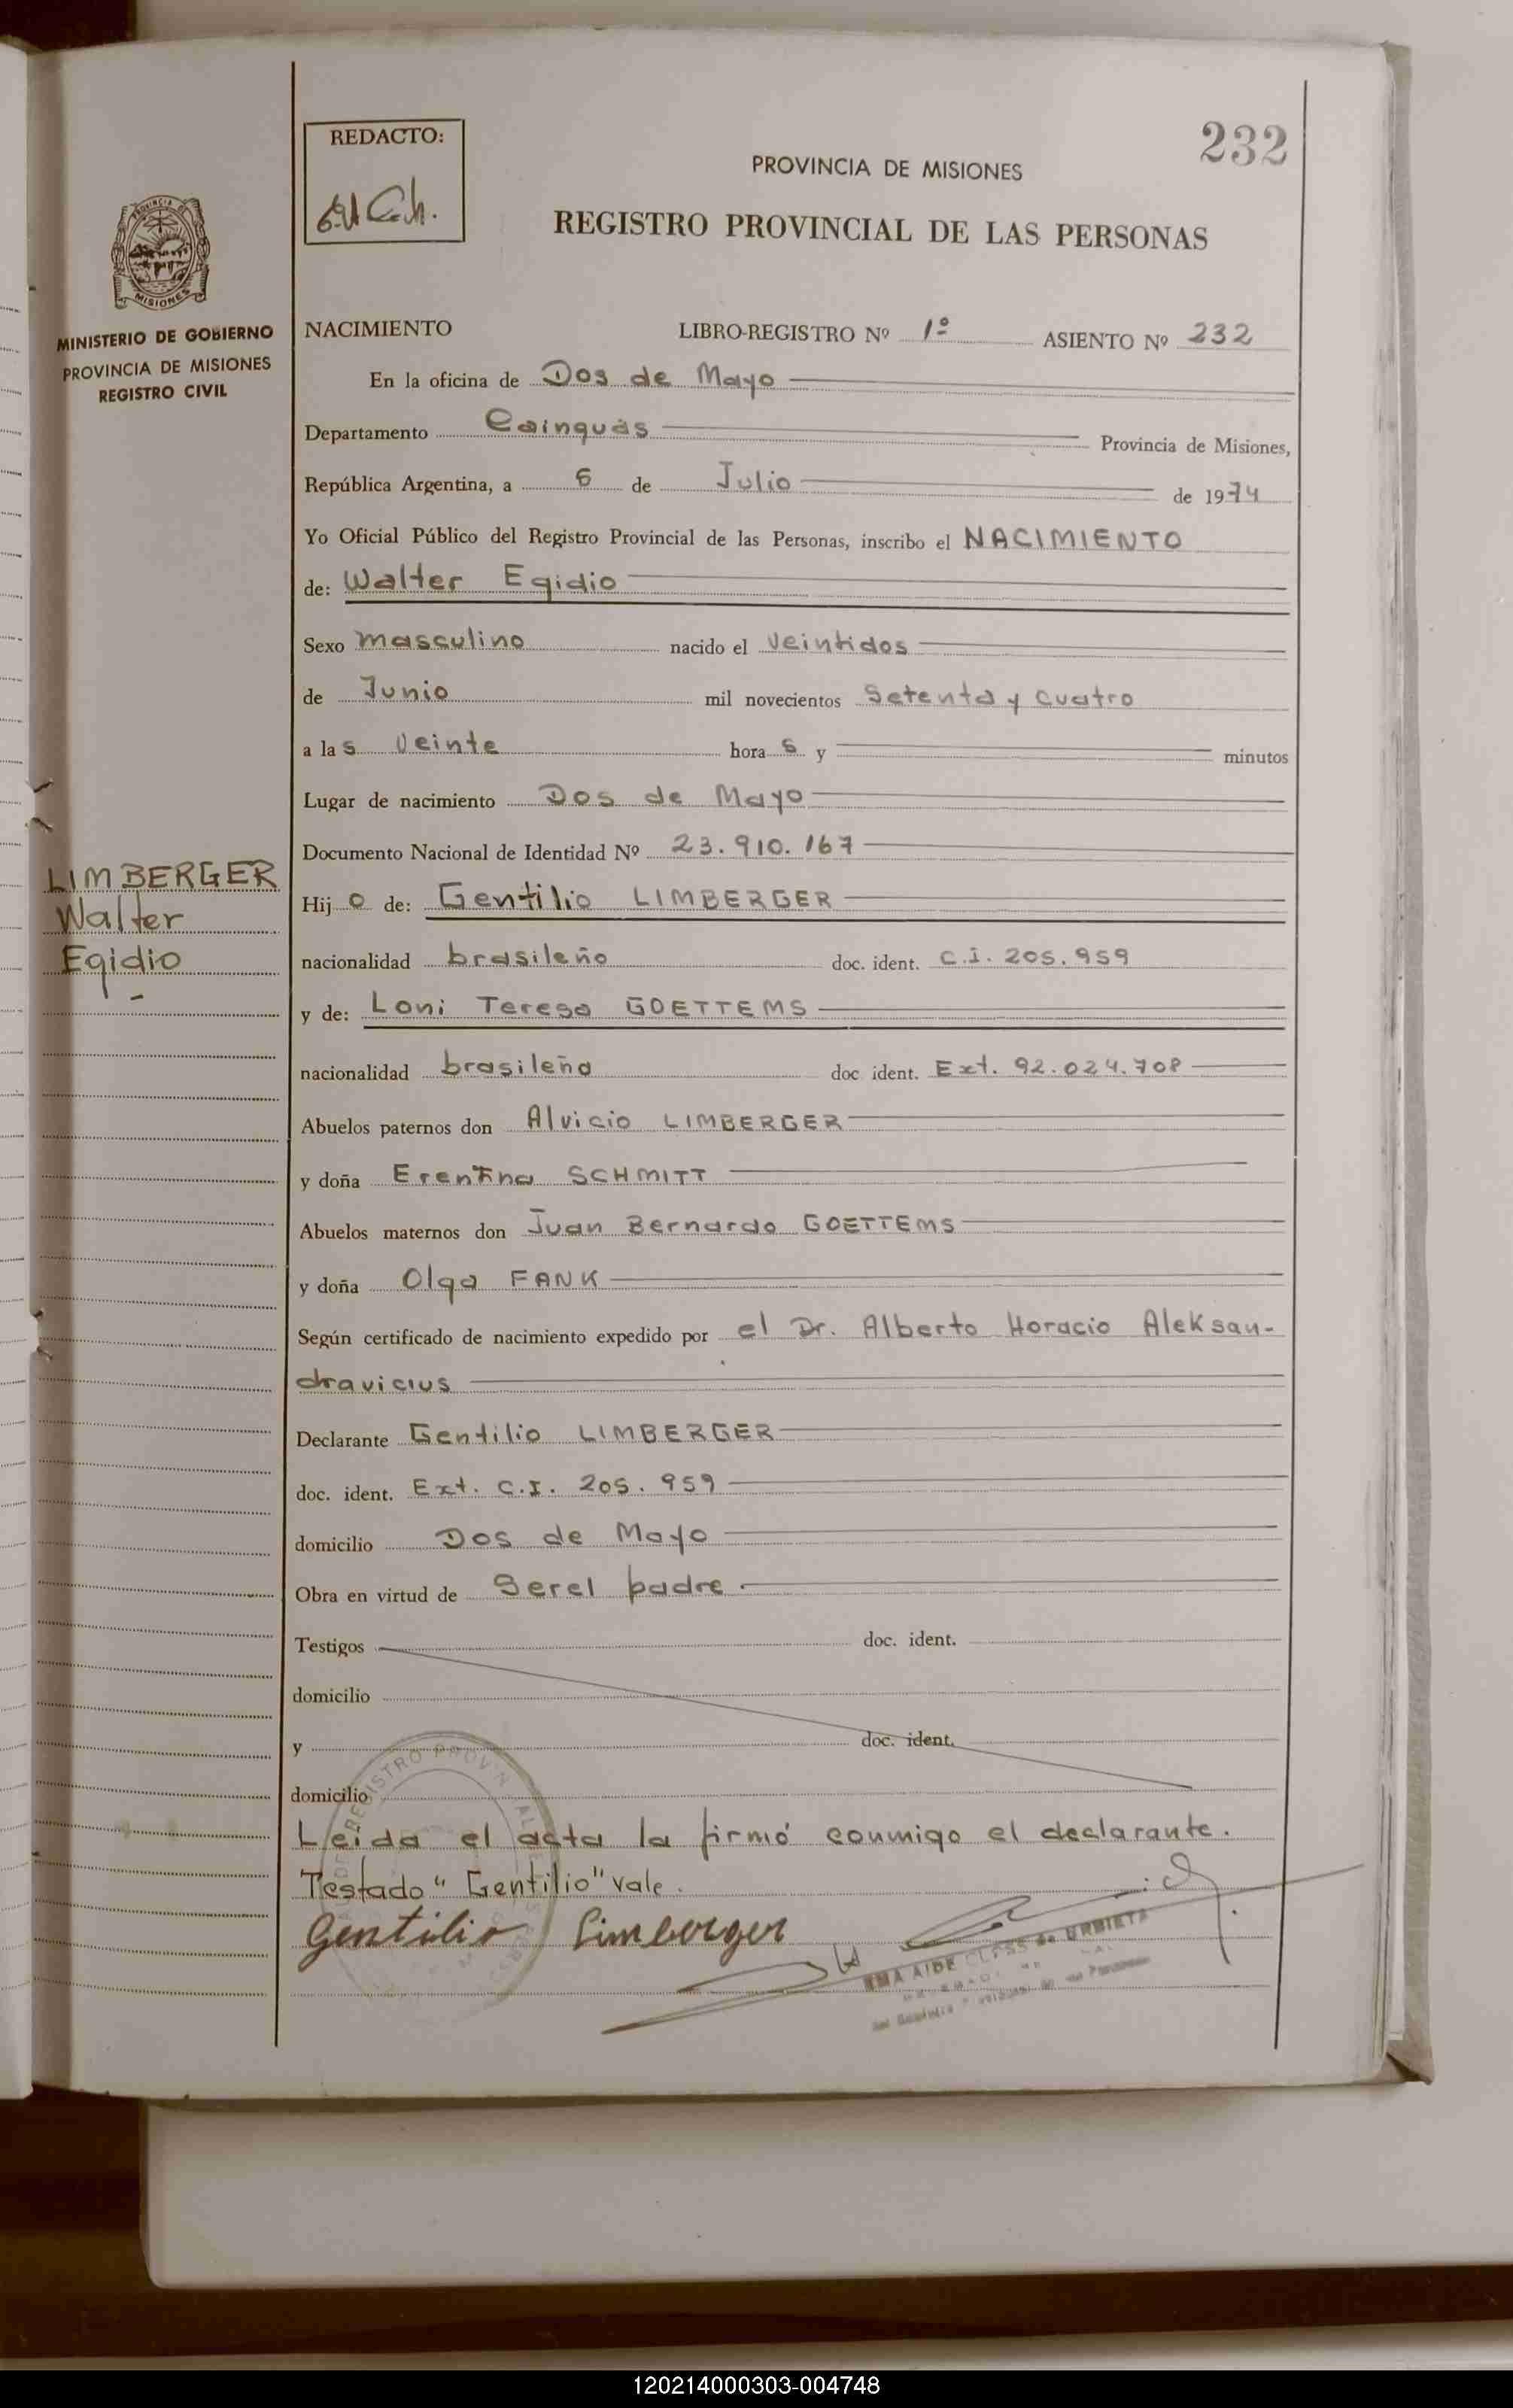 232
REDACTO:
PROVINCIA DE MISIONES
REGISTRO PROVINCIAL DE LAS PERSONAS
MISIONES
MINISTERIO DE GOBIERNO
PROVINCIA DE MISIONES
REGISTRO CIVIL
NACIMIENTO LIBRO-REGISTRO Nº 1º ASIENTO Nº 232
En la oficina de Dos de Mayo
Departamento Cainguás Provincia de Misiones,
República Argentina, a 6 de Julio de 1974
Yo Oficial Público del Registro Provincial de las Personas, inscribo el NACIMIENTO
de: Walter Egidio
Sexo masculino nacido el veintidos
de Junio mil novecientos setenta y cuatro
a las veinte horas y minutos
Lugar de nacimiento Dos de Mayo
Documento Nacional de Identidad Nº 23.910.167
LIMBERGER
Walter
Egidio
Hijo de: Gentilio LIMBERGER
nacionalidad brasileño doc. ident. C.I. 205.959
y de: Loni Teresa GOETTEMS
nacionalidad brasileña doc ident. Ext. 92.024.708
Abuelos paternos don Alvicio LIMBERGER
y doña Erentina SCHMITT
Abuelos maternos don Juan Bernardo GOETTEMS
y doña Olga FANK
Según certificado de nacimiento expedido por el Dr. Alberto Horacio Aleksan-
dravicius
Declarante Gentilio LIMBERGER
doc. ident. Ext. C.I. 205.959
domicilio Dos de Mayo
Obra en virtud de Ser el padre.
Testigos doc. ident.
domicilio
y doc. ident.
domicilio
Leida el acta la firmó conmigo el declarante.
Testado "Gentilio" vale.
Gentilio Limberger
AIDE CLASS de URBIETA
120214000303-004748